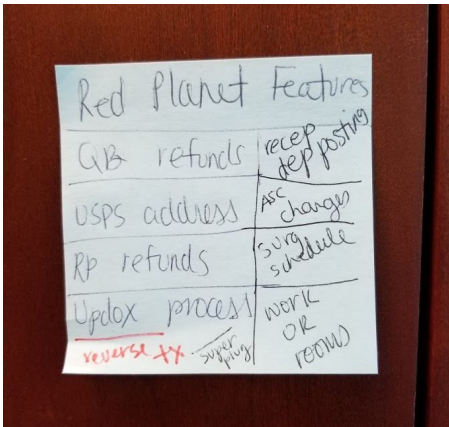 Red Planet Features
QB refunds
recep
dep posting
USPS address
ASC
changes
RP refunds
surg
schedule
Updox process
work
OR
rooms
reverse tx
super
plug